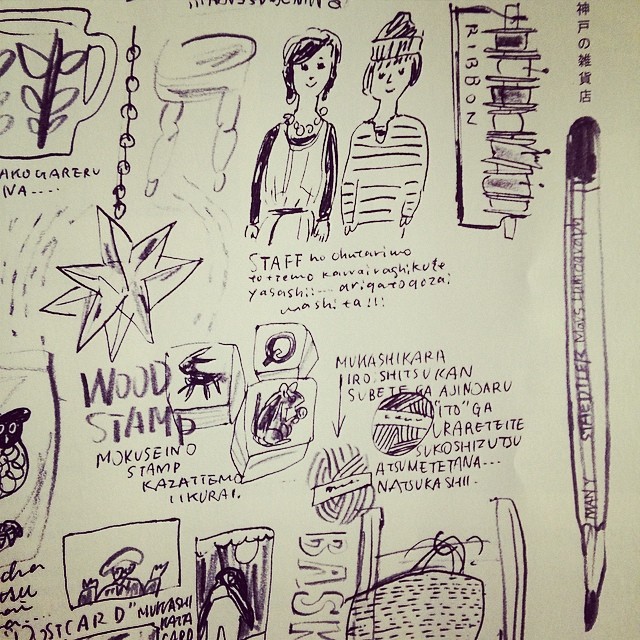 神戸の雑貨店
RIBBON
AKOGARERU
NA....
STAFF no ohutarimo
tottemo kawairashikute
yasashii... arigatogozai
mashita!!!
WOOD
STAMP
MOKUSEINO
STAMP
KAZATTEMO
IIKURAI.
MUKASHIKARA
IROSHITSUKAN
SUBETE GA AJINOARU
"ITO" GA
URARETEITE
SUKOSHIZUTSU
ATSUMETETANA...
NATSUKASHII..
STAEDTLER Mars Lumograph
POSTCARD"
MUKASHI
KARA
CARD
BASK